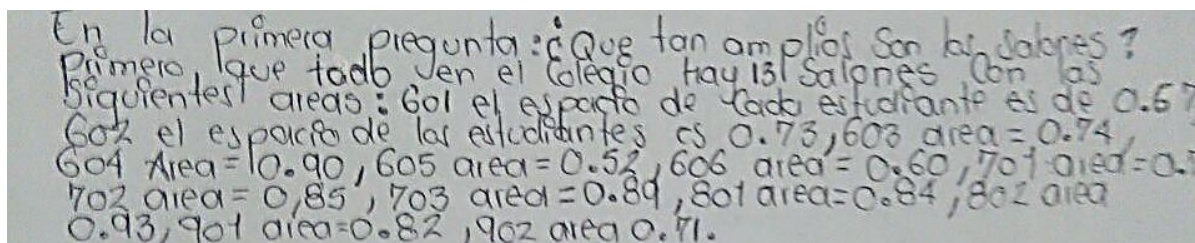 En la primera pregunta: ¿Que tan amplios son los salones?
Primero, que todo en el Colegio hay 13 Salones Con las
Siguientes areas: 601 el espacio de cada estudiante es de 0.67
602 el espacio de las estudiantes es 0.73, 603 area = 0.74,
604 Area = 0.90, 605 area = 0.52, 606 area = 0.60, 701 area = 0.
702 area = 0,85, 703 area = 0.89, 801 area = 0.84, 802 area
0.93, 901 area = 0.82, 902 area 0.71.